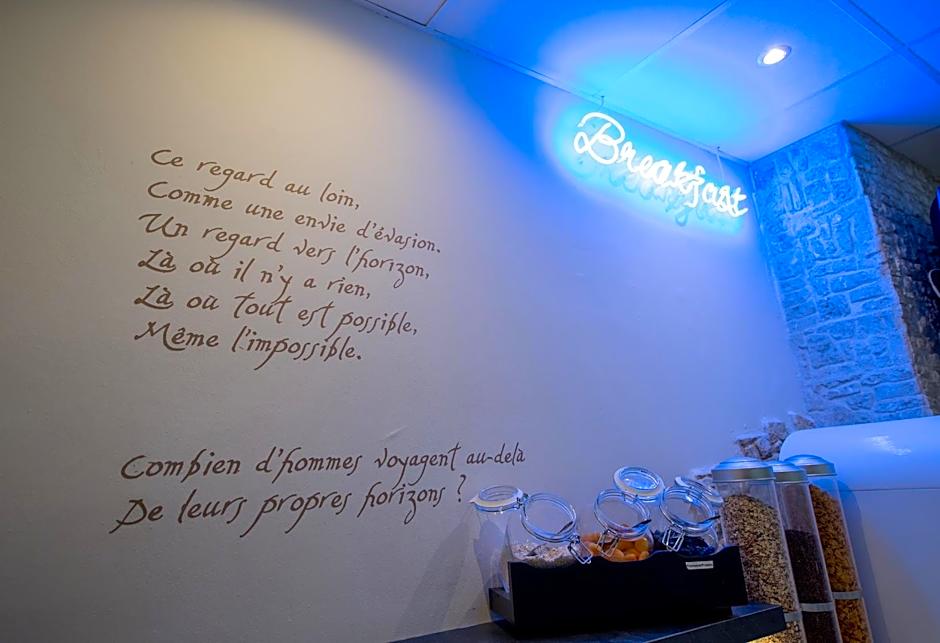 Ce regard au loin,
Comme une envie d'évasion.
Un regard vers l'horizon,
Là où il n'y a rien,
Là où tout est possible,
Même l'impossible.
Combien d'hommes voyagent au-delà
De leurs propres horizons ?
Breakfast